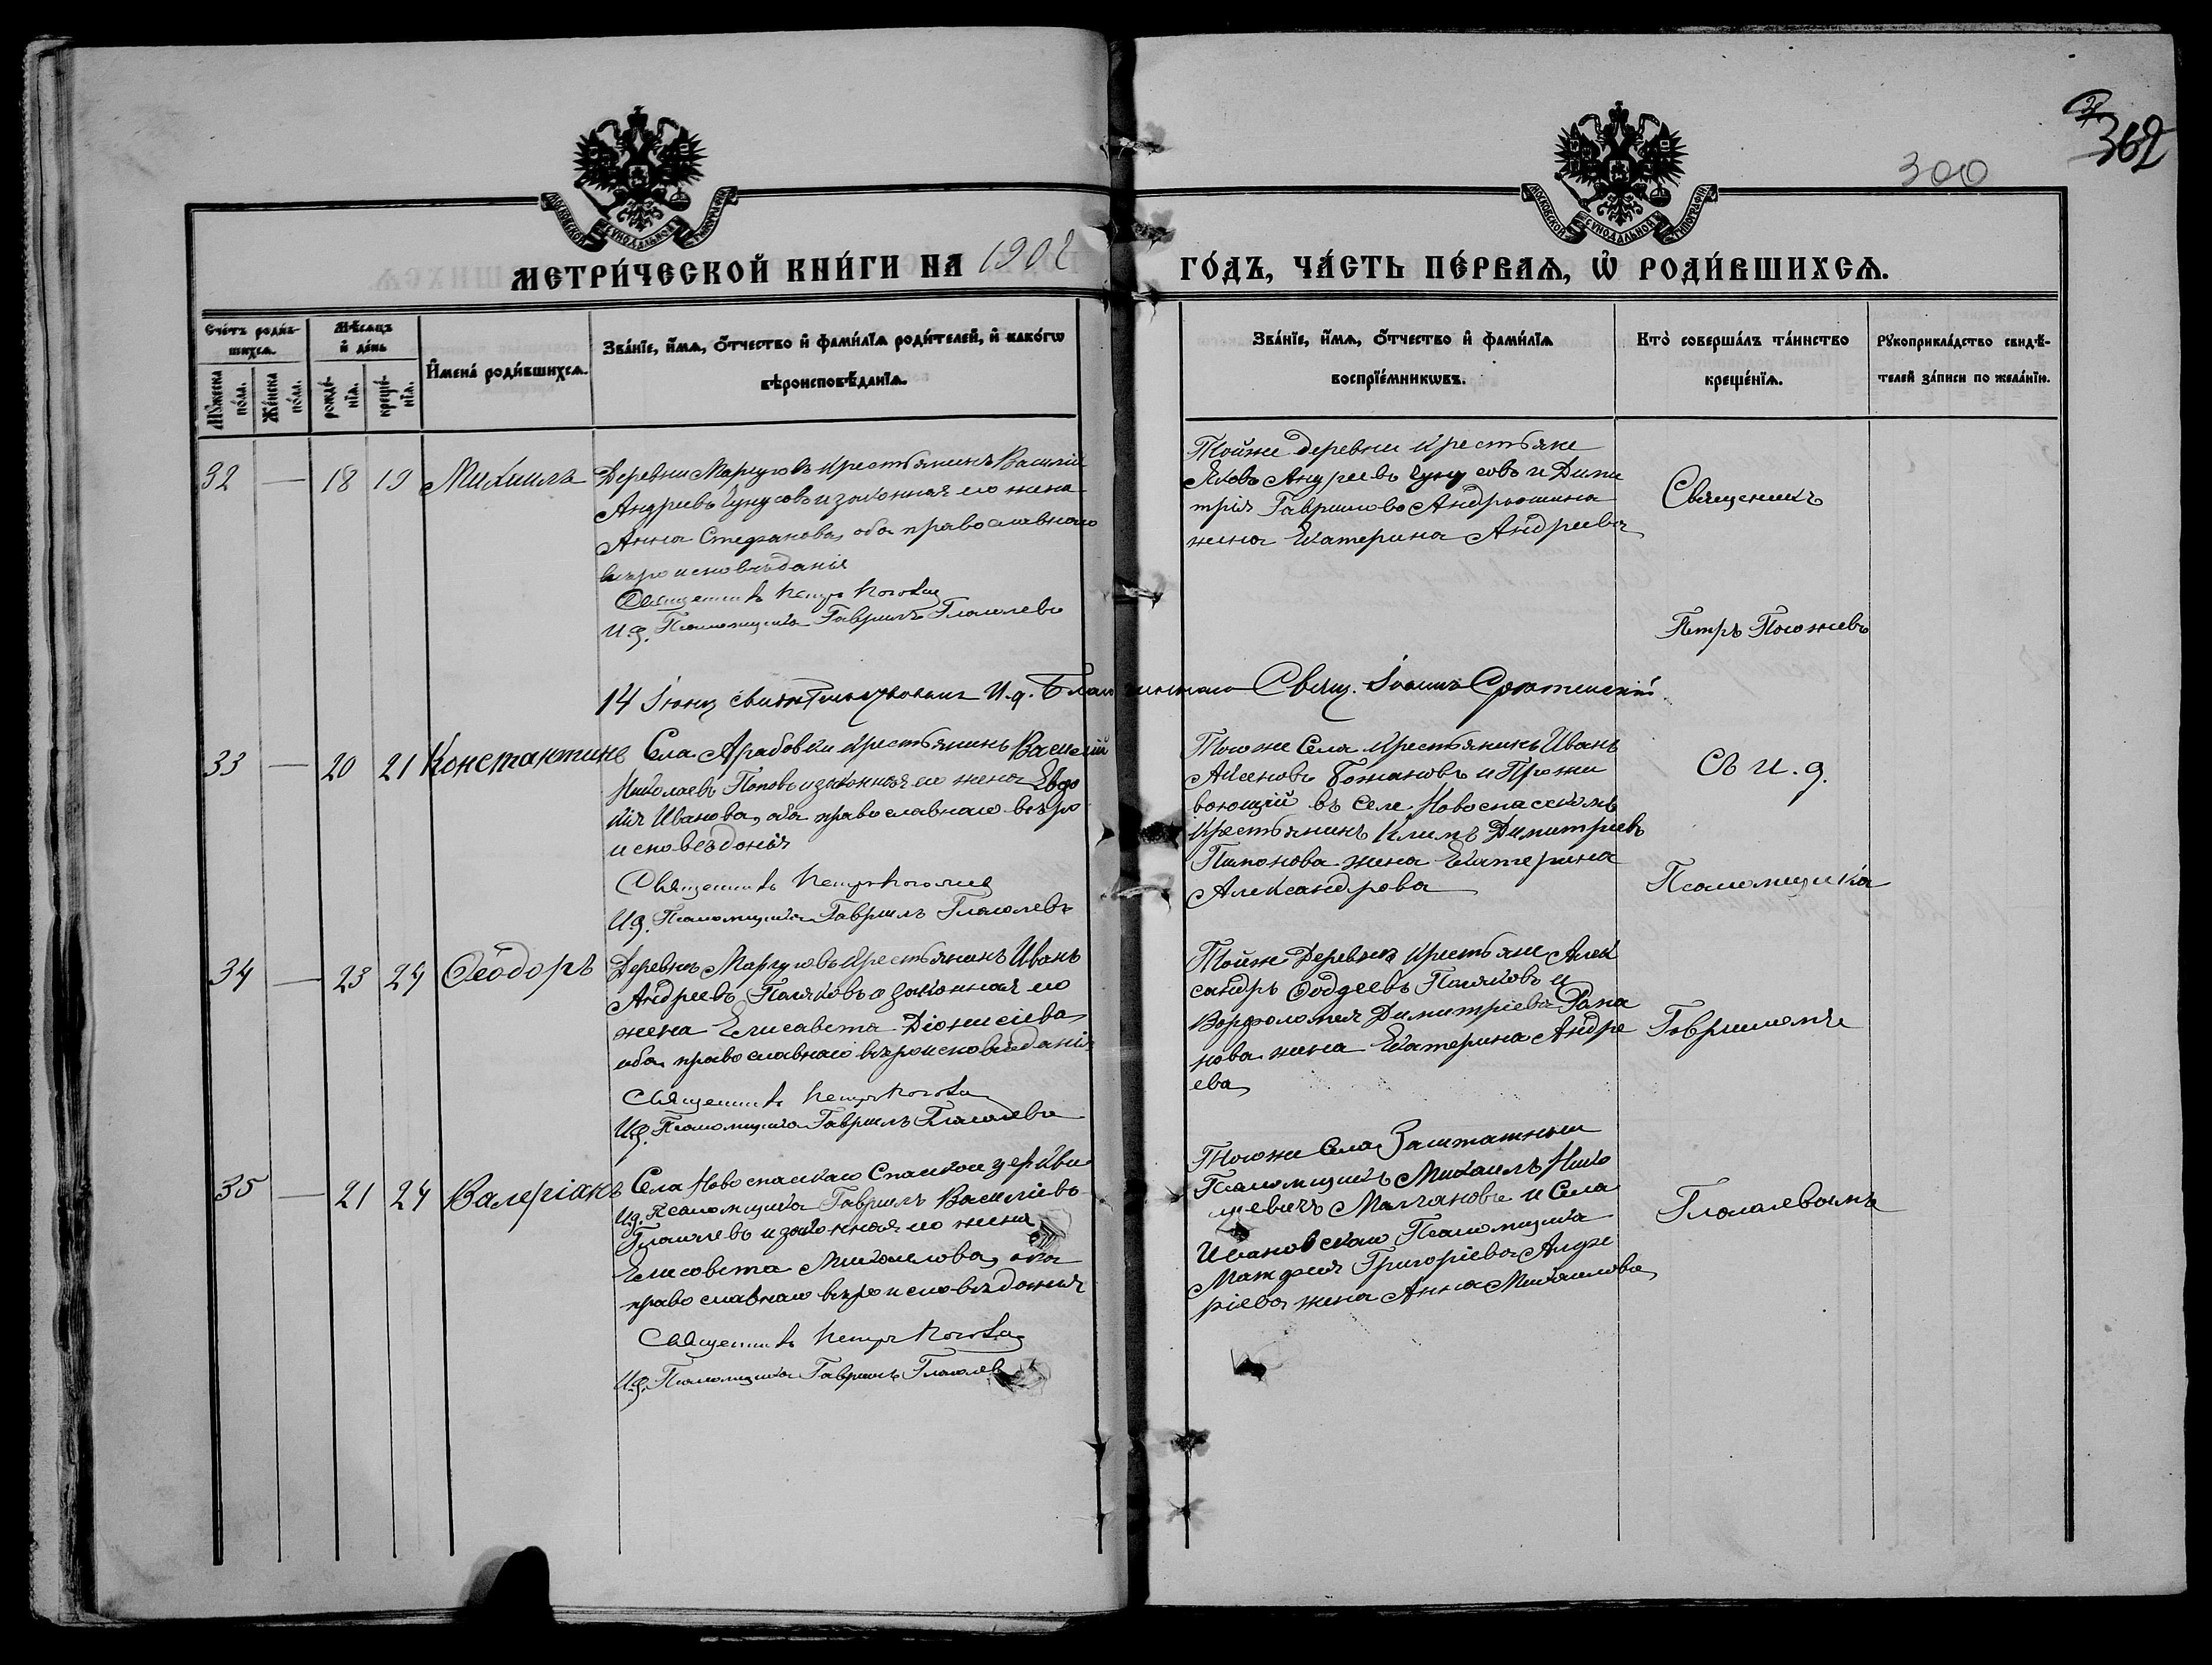 362
300
МОСКОВСКОЙ СѴНОДАЛЬНОЙ ТИПОГРАФІИ
МОСКОВСКОЙ СѴНОДАЛЬНОЙ ТИПОГРАФІИ
МЕТРИ́ЧЕСКОЙ КНИ́ГИ НА 1902
ГО́ДЪ, ЧА́СТЬ ПЕ́РВАѦ, Ѡ҆ РОДИ́ВШИХСѦ.
Сче́тъ роди́в-
шихсѧ.
Мꙋ́жеска по́ла.
Же́нска по́ла.
Мѣ́сѧцъ
и҆ де́нь
рожде́-нїѧ.
креще́-нїѧ.
И҆мена̀ роди́вшихсѧ.
Зва́нїе, и҆́мѧ, ѻ҆́тчество и҆ фами́лїѧ роди́телей, и҆ како́гѡ
вѣроисповѣ́данїѧ.
Зва́нїе, и҆́мѧ, ѻ҆́тчество и҆ фами́лїѧ
воспрїе́мникѡвъ.
Кто̀ соверша́лъ та́инство
креще́нїѧ.
Рꙋкоприкла́дство свидѣ́-
телей за́писи по жела́нїю.
32 — 18 19 Михаилъ
Деревни Маргусовъ крестьянинъ Василій
Андреевъ и законная его жена
Анна Стефанова, оба православнаго
вѣроисповѣданія
Священникъ Петръ Погожев
И.д. Псаломщика Гавриилъ Глаголевъ
Тойже деревни крестьяне
Яковъ Андреевъ и Дими
трія Гаврилова Андрюшина
жена Екатерина Андреева
Священникъ
Петръ Погожевъ
14 Іюня И.д. Благочиннаго Свящ. Іоаннъ Срѣтенскій
33 — 20 21 Константинъ
Села Арабовки крестьянинъ Василій
Николаевъ Поповъ и законная его жена Евдо
кія Иванова, оба православнаго вѣро
исповѣданія
Священникъ Петръ Погожев
И.д. Псаломщика Гавриилъ Глаголевъ
Тогоже Села крестьянинъ Иванъ
и Прожи
вающій въ Селе Новоспасскомъ
крестьянинъ Климъ Димитріевъ
жена Екатерина
Александрова
Съ И.д.
Псаломщика
34 — 23 24 Ѳеодоръ
Деревни Маргусовъ крестьянинъ Иванъ
Андреевъ Поляковъ и законная его
жена Елисавета Діонисіева,
оба православнаго вѣроисповѣданія
Священникъ Петръ Погожев
И.д. Псаломщика Гавриилъ Глаголевъ
Тойже Деревни крестьяне Алек
сандръ Поляковъ и
Варфоломея Димитріева Рома
нова жена Екатерина Андре
ева
Гавріиломъ
35 — 21 24 Валеріанъ
Села Новоспаскаго Спаской церкви
И.д. Псаломщика Гавриилъ Василіевъ
Глаголевъ и законная его жена
Елисавета Михаилова, оба
православнаго вѣроисповѣданія
Священникъ Петръ Погожев
И.д. Псаломщика Гавриилъ Глаголев
Тогоже Села Заштатный
Псаломщикъ Михаилъ Нико
лаевичъ Молчановъ и Села
Ивановскаго Псаломщика
Матфея Григоріева
жена Анна Михаилова
Глаголевымъ